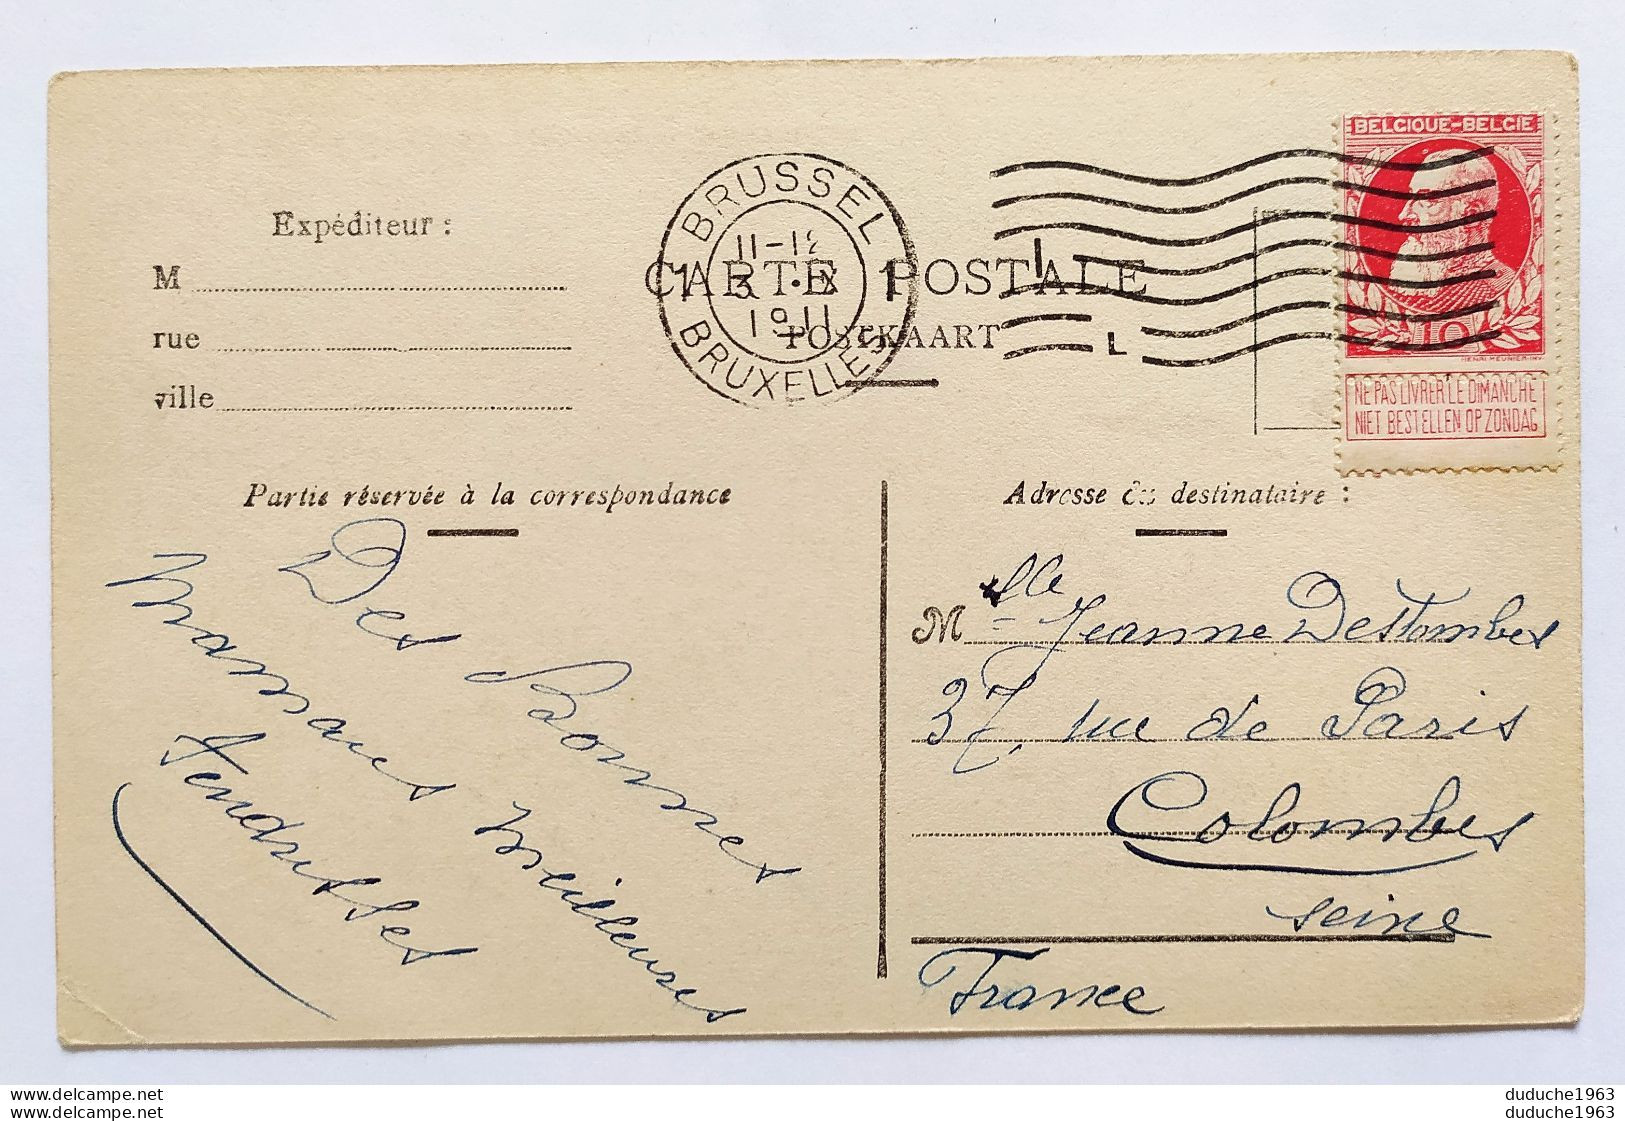 BELGIQUE-BELGIE
10
HENRI MEUNIER.INV.
NE PAS LIVRER LE DIMANCHE
NIET BESTELLEN OP ZONDAG
BRUSSEL
1 11-12 1
3 · X
1911
BRUXELLES
L
CARTE POSTALE
POSTKAART
Expéditeur :
M
rue
ville
Partie réservée à la correspondance
Des Bonnes
mamans meilleures
tendresses
Adresse du destinataire :
M lle Jeanne Destombes
37, rue de Paris
Colombes
Seine
France
duduche1963
duduche1963
duduche1963
duduche1963